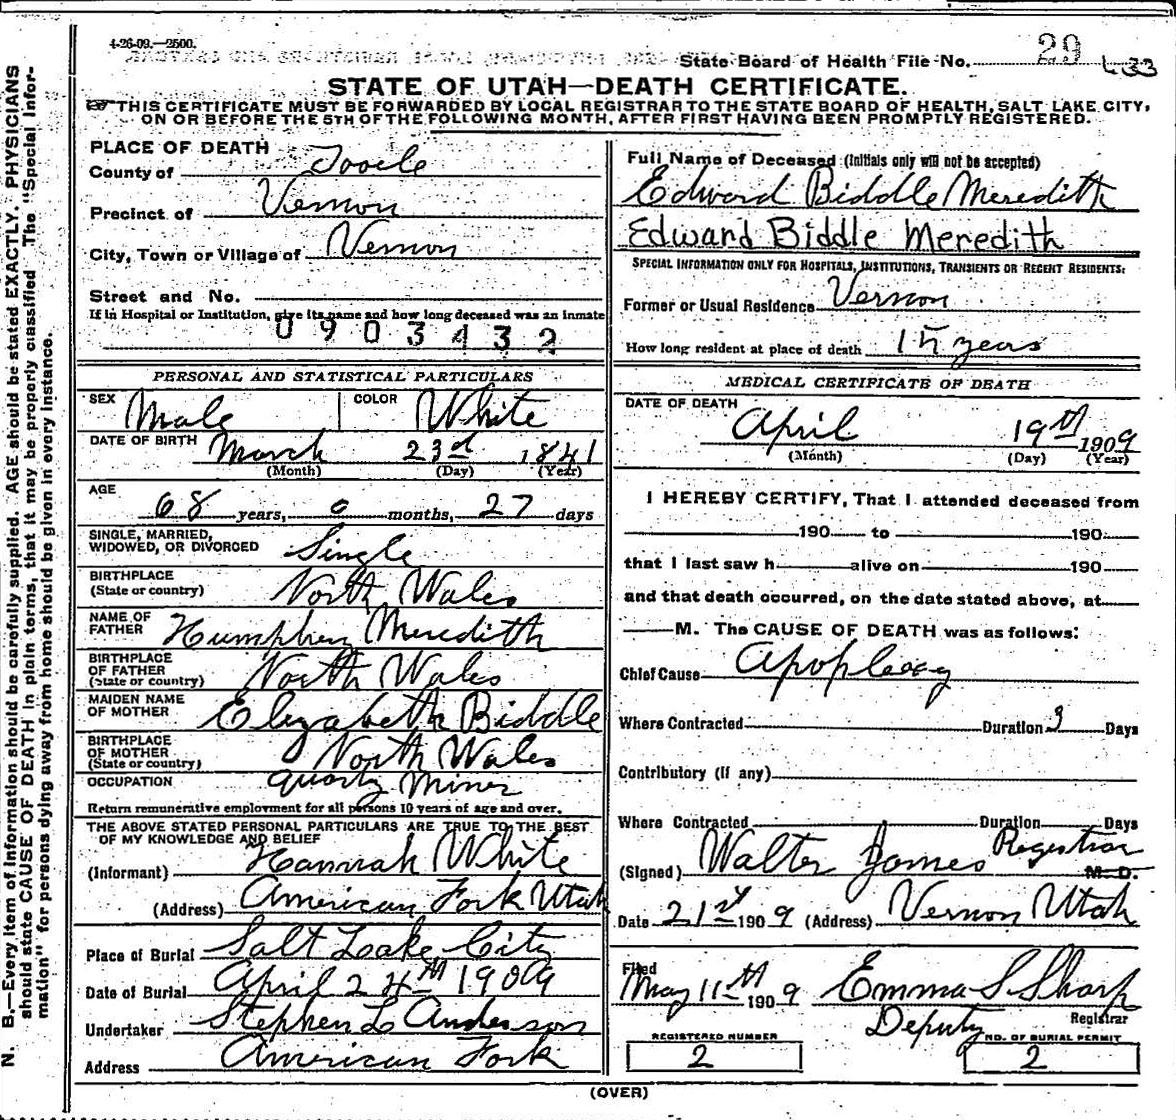 4-26-09.—2500.
State Board of Health File No. 29 433
STATE OF UTAH—DEATH CERTIFICATE.
THIS CERTIFICATE MUST BE FORWARDED BY LOCAL REGISTRAR TO THE STATE BOARD OF HEALTH, SALT LAKE CITY,
ON OR BEFORE THE 5TH OF THE FOLLOWING MONTH, AFTER FIRST HAVING BEEN PROMPTLY REGISTERED.
N. B.—Every item of information should be carefully supplied. AGE should be stated EXACTLY. PHYSICIANS
should state CAUSE OF DEATH in plain terms, that it may be properly classified. The "Special Infor-
mation" for persons dying away from home should be given in every instance.
PLACE OF DEATH
County of Tooele
Precinct of Vernon
City, Town or Village of Vernon
Street and No.
If in Hospital or Institution, give its name and how long deceased was an inmate
0903432
PERSONAL AND STATISTICAL PARTICULARS
SEX Male COLOR White
DATE OF BIRTH March 23d 1841
(Month) (Day) (Year)
AGE 68 years, 0 months, 27 days
SINGLE, MARRIED,
WIDOWED, OR DIVORCED Single
BIRTHPLACE
(State or country) North Wales
NAME OF
FATHER Humphrey Meredith
BIRTHPLACE
OF FATHER
(State or country) North Wales
MAIDEN NAME
OF MOTHER Elizabeth Biddle
BIRTHPLACE
OF MOTHER
(State or country) North Wales
OCCUPATION Quartz Miner
Return remunerative employment for all persons 10 years of age and over.
THE ABOVE STATED PERSONAL PARTICULARS ARE TRUE TO THE BEST
OF MY KNOWLEDGE AND BELIEF
(Informant) Hannah White
(Address) American Fork Utah
Place of Burial Salt Lake City
Date of Burial April 24th 1909
Undertaker Stephen L Anderson
Address American Fork
Full Name of Deceased (Initials only will not be accepted)
Edward Biddle Meredith
Edward Biddle Meredith
SPECIAL INFORMATION ONLY FOR HOSPITALS, INSTITUTIONS, TRANSIENTS OR RECENT RESIDENTS:
Former or Usual Residence Vernon
How long resident at place of death 15 years
MEDICAL CERTIFICATE OF DEATH
DATE OF DEATH
April 19th 1909
(Month) (Day) (Year)
I HEREBY CERTIFY, That I attended deceased from
190 to 190
that I last saw h alive on 190
and that death occurred, on the date stated above, at
M. The CAUSE OF DEATH was as follows:
Chief Cause Apoplexy
Where Contracted Duration 3 Days
Contributory (if any)
Where Contracted Duration Days
(Signed) Walter James Registrar M. D.
Date 21st 1909 (Address) Vernon Utah
Filed
May 11th 1909 Emma S Sharp
Deputy Registrar
REGISTERED NUMBER
2
NO. OF BURIAL PERMIT
2
(OVER)